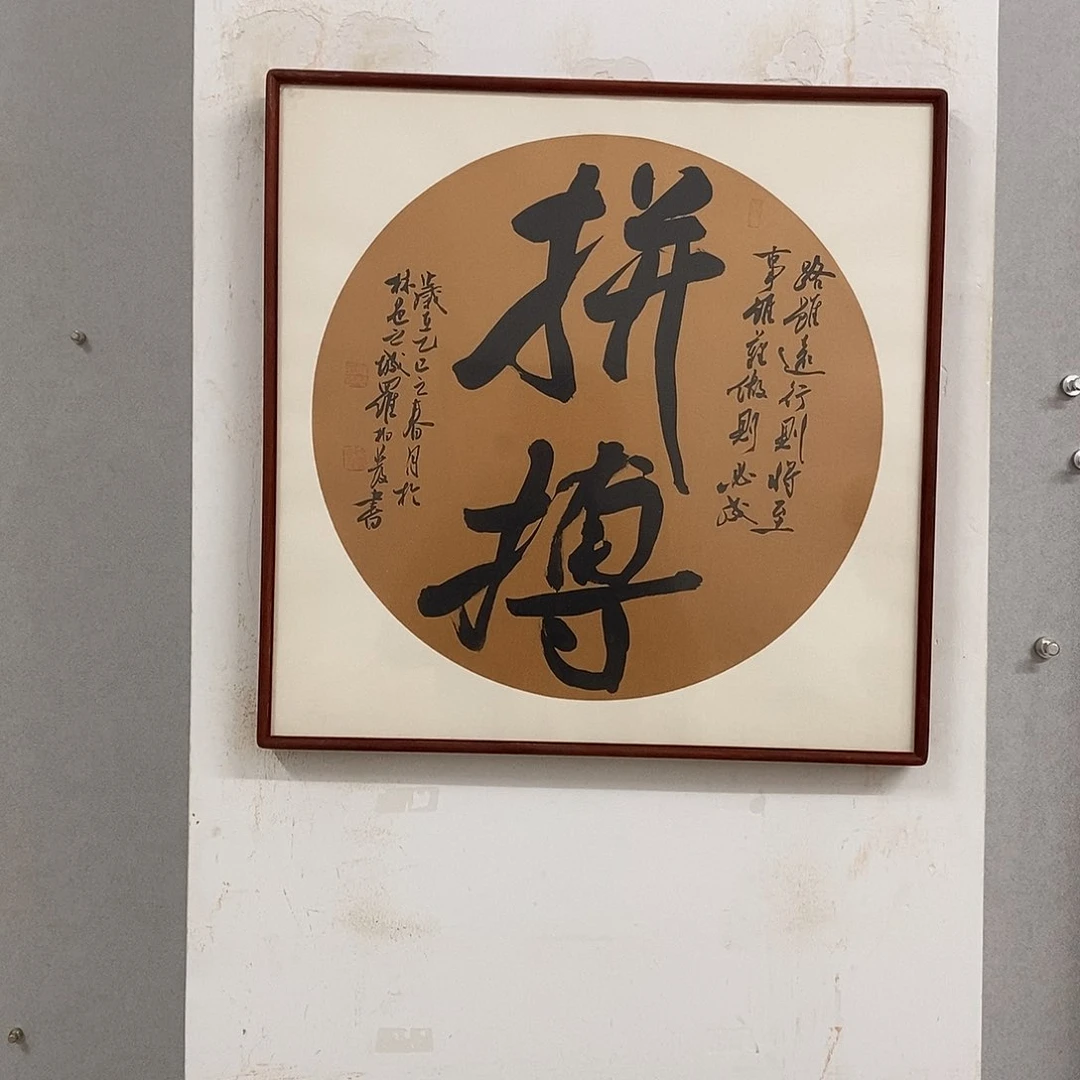 拼搏
路雖遠行則將至
事雖難做則必成
歲在乙巳之春月於
林邑之城羅書